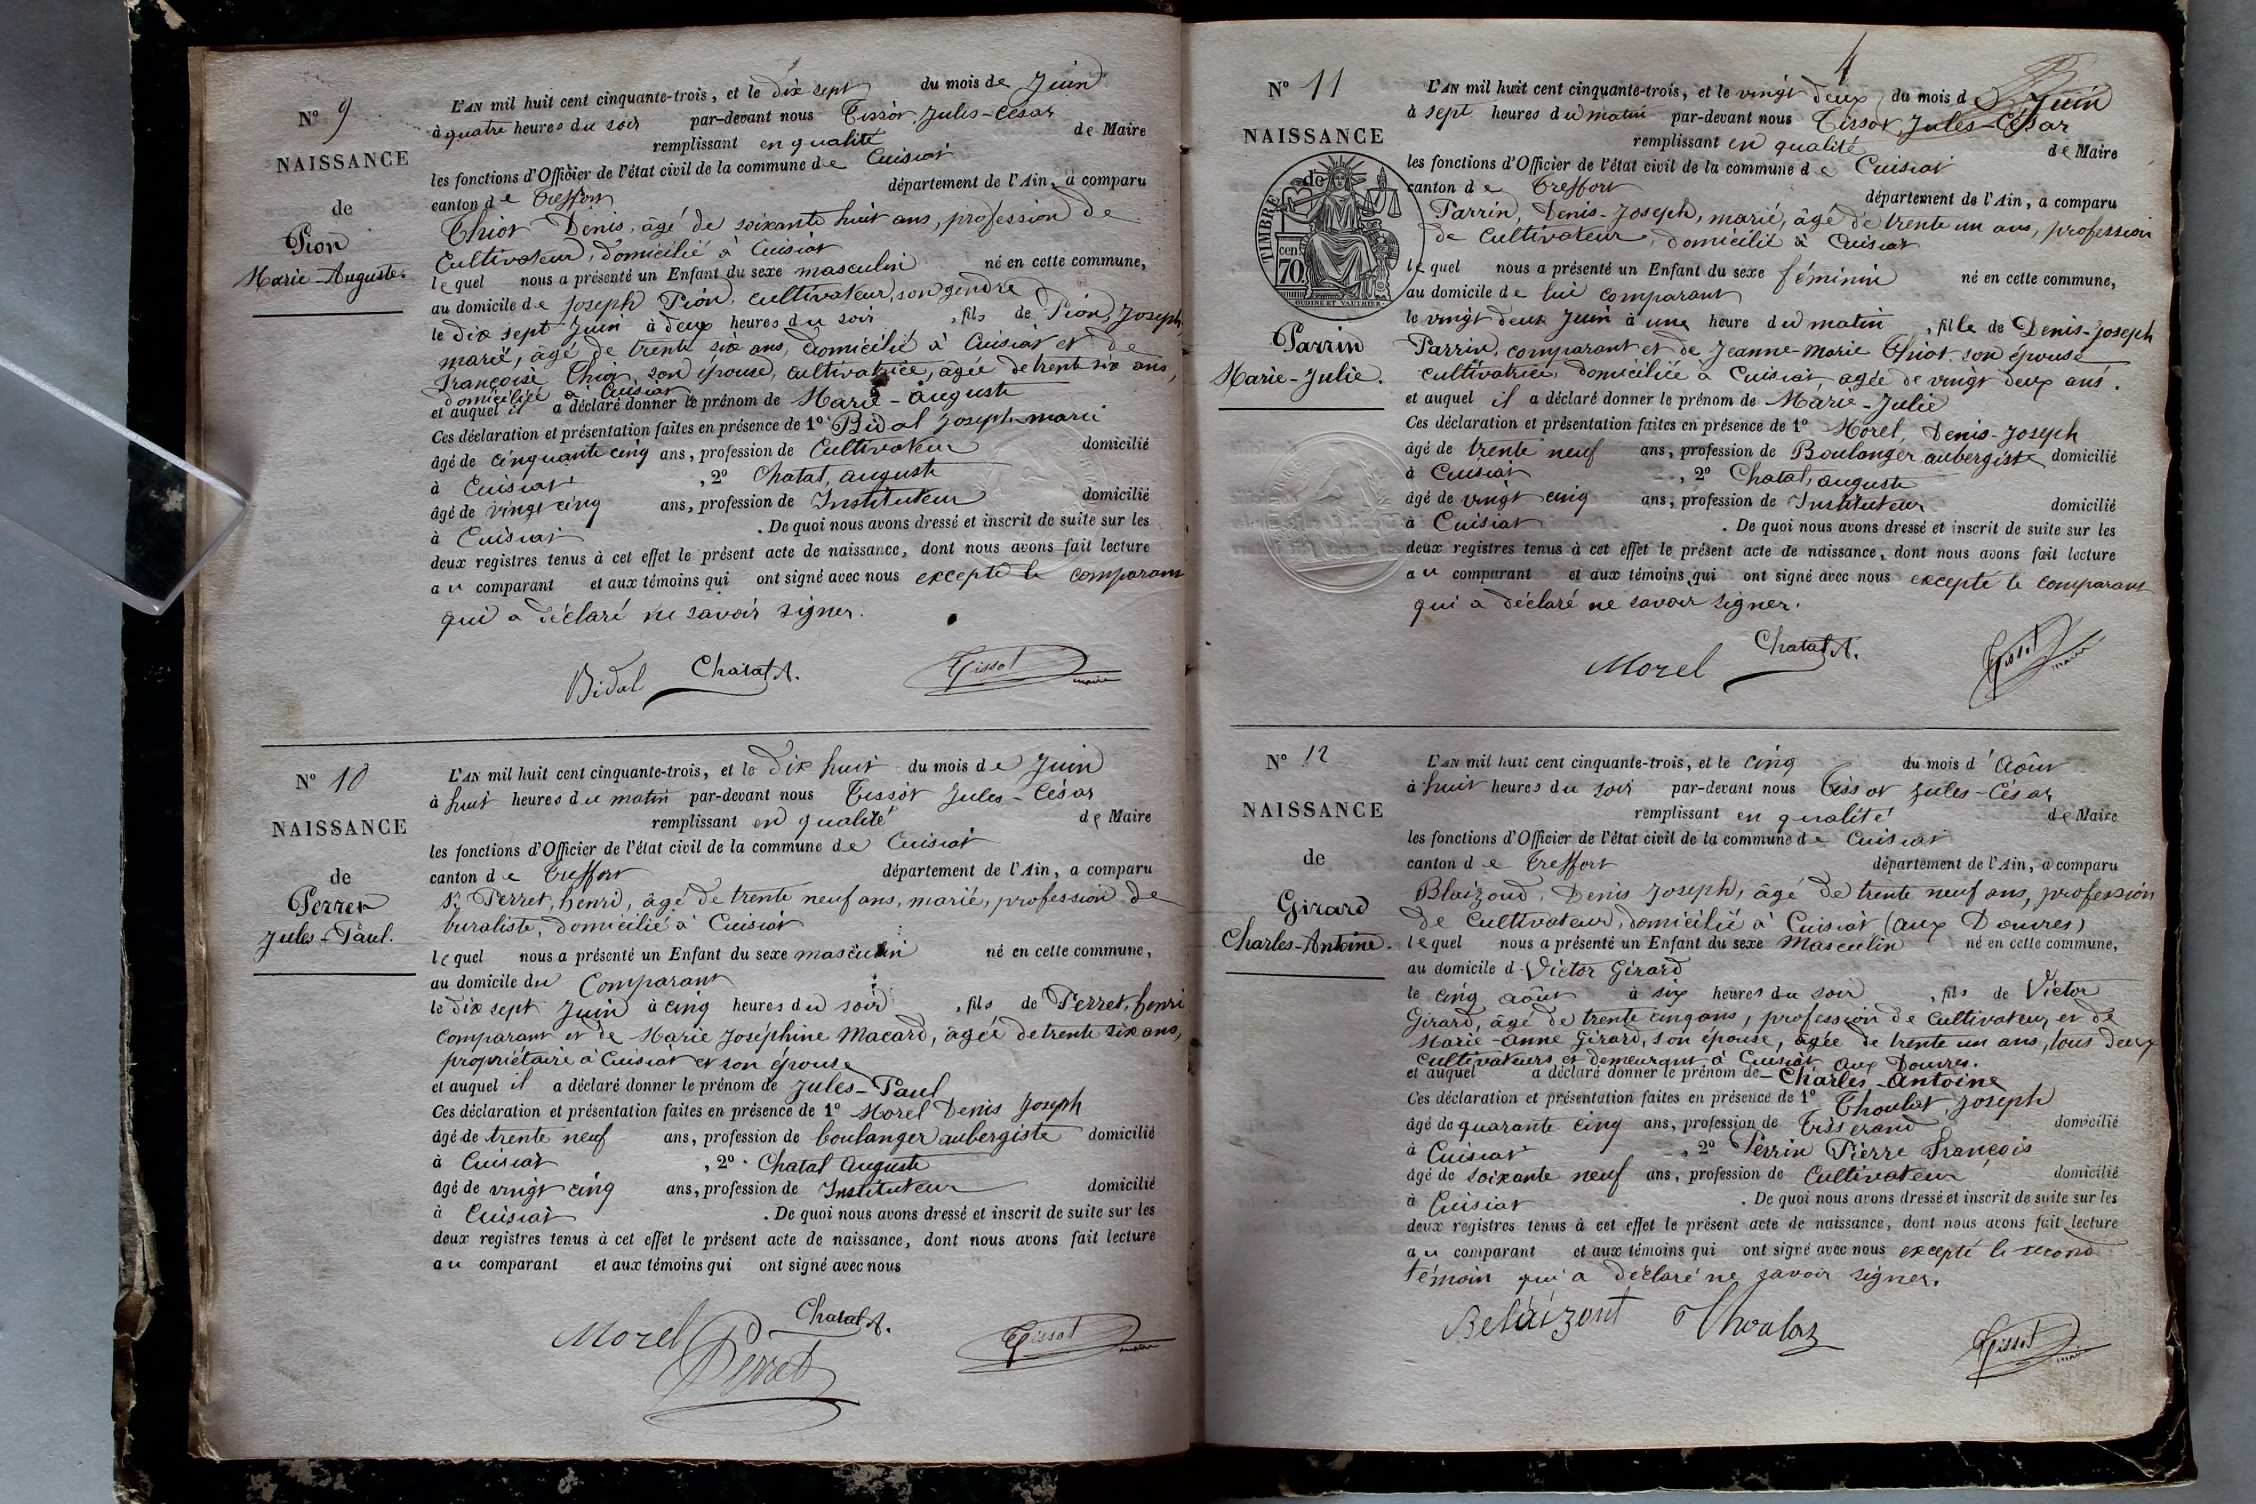 N° 9
NAISSANCE
de
Pion
Marie-Auguste.
L'AN mil huit cent cinquante-trois, et le dix sept du mois de Juin
à quatre heures du soir par-devant nous Tissot, Jules-César
remplissant en qualité de Maire
les fonctions d'Officier de l'état civil de la commune de Cuisiat
canton de Treffort département de l'Ain, a comparu
Thiot Denis, âgé de soixante huit ans, profession de
Cultivateur, domicilié à Cuisiat
lequel nous a présenté un Enfant du sexe masculin né en cette commune,
au domicile de Joseph Pion, cultivateur, son gendre
le dix sept Juin à deux heures du soir, fils de Pion, Joseph
marié, âgé de trente six ans, domicilié à Cuisiat et de
Françoise Thiot, son épouse, cultivatrice, âgée de trente six ans,
domiciliée à Cuisiat
et auquel il a déclaré donner le prénom de Marie-Auguste
Ces déclaration et présentation faites en présence de 1° Bidal Joseph-marie
âgé de cinquante cinq ans, profession de Cultivateur domicilié
à Cuisiat, 2° Chatal, auguste
âgé de vingt cinq ans, profession de Instituteur domicilié
à Cuisiat. De quoi nous avons dressé et inscrit de suite sur les
deux registres tenus à cet effet le présent acte de naissance, dont nous avons fait lecture
au comparant et aux témoins qui ont signé avec nous excepté le comparant
qui a déclaré ne savoir signer.
Bidal Chatal A. Tissot maire
N° 10
NAISSANCE
de
Perret
Jules-Paul.
L'AN mil huit cent cinquante-trois, et le Dix huit du mois de Juin
à huit heures du matin par-devant nous Tissot Jules-César
remplissant en qualité de Maire
les fonctions d'Officier de l'état civil de la commune de Cuisiat
canton de Treffort département de l'Ain, a comparu
Sr. Perret, henri, âgé de trente neuf ans, marié, profession de
buraliste, domicilié à Cuisiat
lequel nous a présenté un Enfant du sexe masculin né en cette commune,
au domicile du Comparant
le dix sept Juin à cinq heures du soir, fils de Perret, henri
comparant et de Marie Joséphine Macard, âgée de trente six ans,
propriétaire à Cuisiat et son épouse
et auquel il a déclaré donner le prénom de Jules-Paul
Ces déclaration et présentation faites en présence de 1° Morel Denis Joseph
âgé de trente neuf ans, profession de boulanger aubergiste domicilié
à Cuisiat, 2° Chatal Auguste
âgé de vingt cinq ans, profession de Instituteur domicilié
à Cuisiat. De quoi nous avons dressé et inscrit de suite sur les
deux registres tenus à cet effet le présent acte de naissance, dont nous avons fait lecture
au comparant et aux témoins qui ont signé avec nous
Morel Chatal A. Tissot maire
Perret
4
N° 11
NAISSANCE
de
TIMBRE
cen. 70.
OUDINÉ ET VAUTHIER
Parrin
Marie-Julie.
L'AN mil huit cent cinquante-trois, et le vingt deux du mois de Juin
à sept heures du matin par-devant nous Tissot, Jules-César
remplissant en qualité de Maire
les fonctions d'Officier de l'état civil de la commune de Cuisiat
canton de Treffort département de l'Ain, a comparu
Parrin, Denis-Joseph, marié, âgé de trente un ans, profession
de Cultivateur, domicilié à Cuisiat
lequel nous a présenté un Enfant du sexe féminin né en cette commune,
au domicile de lui comparant
le vingt deux Juin à une heure du matin, fille de Denis-Joseph
Parrin, comparant et de Jeanne-Marie Thiot, son épouse
cultivatrice, domiciliée à Cuisiat, âgée de vingt deux ans.
et auquel il a déclaré donner le prénom de Marie-Julie
Ces déclaration et présentation faites en présence de 1° Morel, Denis-Joseph
âgé de trente neuf ans, profession de Boulanger aubergiste domicilié
à Cuisiat, 2° Chatal, auguste
âgé de vingt cinq ans, profession de Instituteur domicilié
à Cuisiat. De quoi nous avons dressé et inscrit de suite sur les
deux registres tenus à cet effet le présent acte de naissance, dont nous avons fait lecture
au comparant et aux témoins qui ont signé avec nous excepté le comparant
qui a déclaré ne savoir signer.
Morel Chatal A. Tissot maire
N° 12
NAISSANCE
de
Girard
Charles-Antoine.
L'AN mil huit cent cinquante-trois, et le cinq du mois d'Août
à huit heures du soir par-devant nous Tissot Jules-César
remplissant en qualité de Maire
les fonctions d'Officier de l'état civil de la commune de Cuisiat
canton de Treffort département de l'Ain, a comparu
Blaizond, Denis Joseph, âgé de trente neuf ans, profession
de Cultivateur, domicilié à Cuisiat (aux Douvres)
lequel nous a présenté un Enfant du sexe Masculin né en cette commune,
au domicile d Victor Girard
le cinq août à six heures du soir, fils de Victor
Girard, âgé de trente cinq ans, profession de Cultivateur, et de
Marie-Anne Girard, son épouse, âgée de trente un ans, tous deux
cultivateurs et demeurant à Cuisiat aux Douvres.
et auquel a déclaré donner le prénom de Charles-Antoine
Ces déclaration et présentation faites en présence de 1° Thoulat, Joseph
âgé de quarante cinq ans, profession de Tisserand domicilié
à Cuisiat, 2° Perrin Pierre François
âgé de soixante neuf ans, profession de Cultivateur domicilié
à Cuisiat. De quoi nous avons dressé et inscrit de suite sur les
deux registres tenus à cet effet le présent acte de naissance, dont nous avons fait lecture
au comparant et aux témoins qui ont signé avec nous excepté le second
témoin qui a déclaré ne savoir signer.
Belaizont Thoulaz Tissot maire